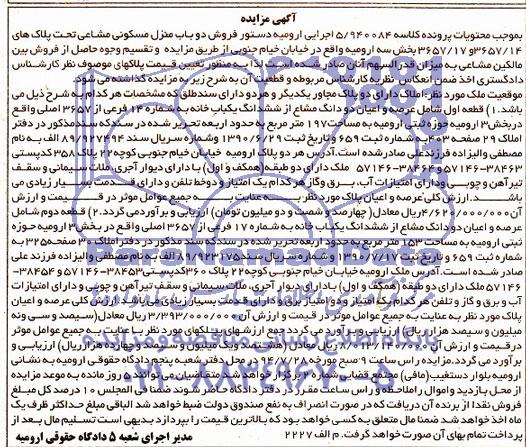 آگهی مزایده
بموجب محتویات پرونده کلاسه ۵/۹۴۰۰۸۴ اجرایی ارومیه دستور فروش دو باب منزل مسکونی مشاعی تحت پلاک های
۳۶۵۷/۱۴ و ۳۶۵۷/۱۷ بخش سه ارومیه واقع در خیابان خیام جنوبی از طریق مزایده و تقسیم وجوه حاصل از فروش بین
مالکین مشاعی به میزان قدر السهم آنان صادر شده است. لذا به منظور تعیین قیمت پلاکهای موصوف نظر کارشناس
دادگستری اخذ ضمن انعکاس نظریه کارشناس مربوطه و قطعیت آن به شرح زیر به مزایده گذاشته می شود.
موقعیت ملک مورد نظر: املاک دارای دو پلاک مجاور یکدیگر و هر دو دارای سند طلق که مشخصات هر کدام به شرح ذیل می
باشد. ۱) قطعه اول شامل عرصه و اعیان دو دانگ مشاع از ششدانگ یکباب خانه به شماره ۱۴ فرعی از ۳۶۵۷ اصلی واقع
در بخش ۳ ارومیه حوزه ثبتی ارومیه به مساحت ۱۹۷ متر مربع به حدود اربعه تحریر شده در سند که سند مذکور در دفتر
املاک ۲۹ صفحه ۴۰۳ به شماره ثبت ۶۵۹ و تاریخ ثبت ۱۳۹۰/۶/۲۹ و شماره سریال سند ۸۹/۹۲۷۴۹۴ الف به نام
مصطفی والیزاده فرزند علی صادر شده است. آدرس هر دو پلاک ارومیه خیابان خیام جنوبی کوچه ۲۲ پلاک ۳۵۸ کدپستی
۳۸۴۶۳-۵۷۱۴۶ ملک دارای دو طبقه (همکف و اول) با دارای دیوار آجری، ملات سیمانی و سقف
تیرآهن و چوبی و دارای امتیازات آب، برق و گاز و هر کدام یک امتیاز و دو خط تلفن و دارای قدمت بسیار زیادی می
باشد. ارزش کلی عرصه و اعیان پلاک مورد نظر با عنایت به جمیع عوامل موثر در قیمت و ارزش
آن ۴/۶۲۰/۰۰۰/۰۰۰ ریال معادل (چهارصد و شصت و دو میلیون تومان) ارزیابی و برآورد می گردد. ۲) قطعه دوم شامل
عرصه و اعیان دو دانگ مشاع از ششدانگ یکباب خانه به شماره ۱۷ فرعی از ۳۶۵۷ اصلی واقع در بخش ۳ ارومیه حوزه
ثبتی ارومیه به مساحت ۱۵۳ متر مربع به حدود اربعه تحریر شده در سند که سند مذکور در دفتر املاک ۳۰ صفحه ۳۲۵ به
شماره ثبت ۶۵۹ و تاریخ ثبت ۱۳۹۰/۶/۱۷ و شماره سریال سند ۸۹/۹۲۳۱۷۵ الف به نام مصطفی والیزاده فرزند علی
صادر شده است. آدرس ملک ارومیه خیابان خیام جنوبی کوچه ۲۲ پلاک ۳۶۰ کدپستی ۳۸۴۵۳-۵۷۱۴۶ و ۳۸۴۵۴-
۵۷۱۴۶ ملک دارای دو طبقه (همکف و اول) با دارای دیوار آجری، ملات سیمانی و سقف تیرآهن و چوبی و دارای امتیازات
آب و برق و گاز و تلفن هر کدام یک امتیاز و دو امتیاز و دارای قدمت بسیار زیادی می باشد. ارزش کلی عرصه و اعیان
پلاک مورد نظر به عنایت به جمیع عوامل موثر در قیمت و ارزش آن ۳/۳۹۳/۰۰۰/۰۰۰ ریال معادل (سیصد و سی و نه
میلیون و سیصد هزار تومان) ارزیابی و برآورد می گردد جمع ارزشهای پلاکهای مورد نظر با عنایت به جمیع عوامل موثر
در قیمت و ارزش آن ریال معادل (هشتصد و یک میلیون و سیصد و چهارده هزار ریال) ارزیابی و
برآورد می گردد. مزایده راس ساعت ۹ صبح مورخه ۹۴/۷/۲۸ در محل دفتر شعبه پنجم دادگاه حقوقی ارومیه به نشانی
ارومیه بلوار دستغیب (مافی) مجتمع قضایی شماره ۲ برگزار خواهد شد متقاضیان می توانند ۵ روز مانده به موعد مزایده
از محل بازدید و اموال را ملاحظه و راس ساعت مقرر در دفتر دادگاه حاضر شوند ضمنا فی المجلس ۱۰ درصد کل مبلغ
فروش نقدا از برنده آن دریافت که در صورت انصراف به نفع صندوق دولت ضبط خواهد شد الباقی مبلغ حداکثر ظرف یک
ماه اخذ خواهد شد ضمنا مال متعلق به کسی خواهد بود که بالاترین قیمت را بپردازد بدیهی است تسلیم مال بعد از
پرداخت تمام بهای آن صورت خواهد گرفت. م الف ۲۲۲۷
مدیر اجرای شعبه ۵ دادگاه حقوقی ارومیه